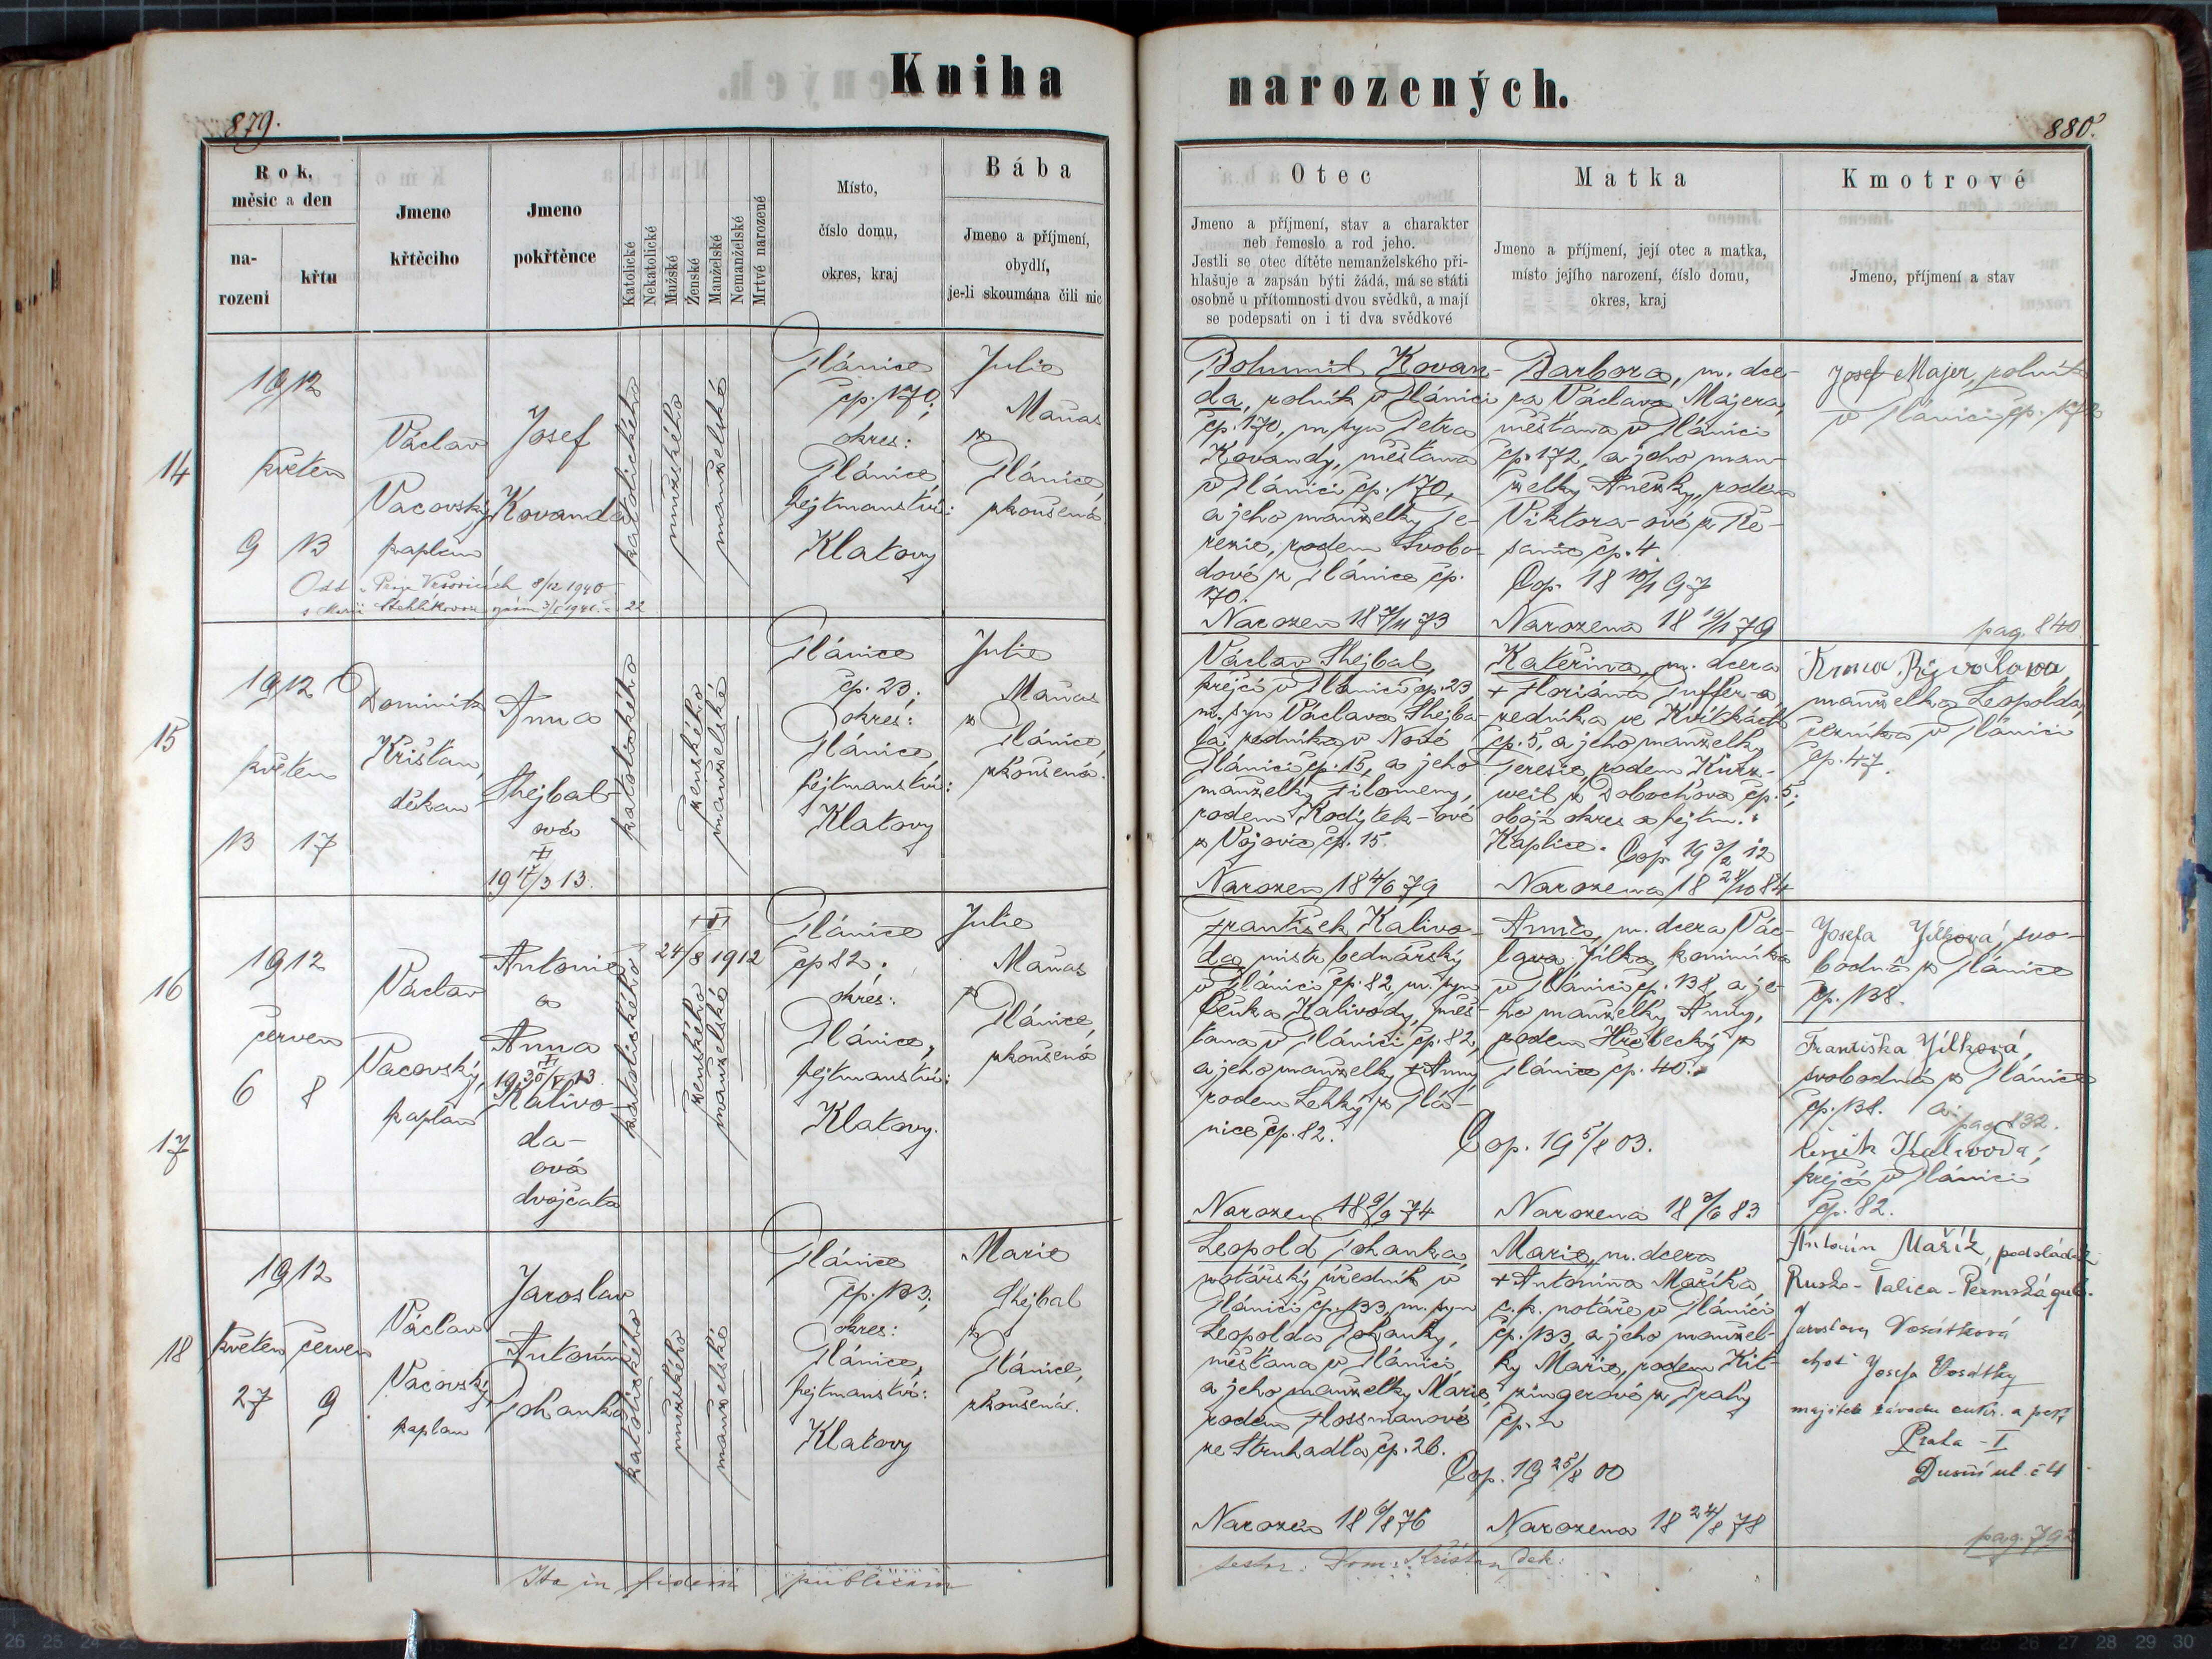 Kniha
879.
Rok,
měsíc a den
na-
rozeni
křtu
Jmeno
křtěcího
Jmeno
pokřtěnce
Katolické
Nekatolické
Mužské
Ženské
Manželské
Nemanželské
Mrtvé narozené
Místo,
číslo domu,
okres, kraj
Bába
Jmeno a příjmení,
obydlí,
je-li skoumána čili nic
14
1912
květen
9 13
Václav
Vacovský
kaplan
Josef
Kovanda
katolického
mužského
manželské
Plánice
čp. 170;
okres:
Plánice
hejtmanství:
Klatovy
Julie
Maňas
z
Plánice
zkoušená
15
1912
květen
13 17
Dominik
Křišťan,
děkan
Anna
Shejbal-
ová
19 17/3 13.
katolického
ženského
manželské
Plánice
čp. 23;
okres:
Plánice,
hejtmanství:
Klatovy
Julie
Maňas
z
Plánice,
zkoušená.
16
17
1912
červen
6 8
Václav
Vacovský,
kaplan
Antonie
a
Anna
19 30/5 13.
Kalivo-
da-
ová
dvojčata
24/8 1912
katolického
ženského
manželské
Plánice
čp 82;
okres:
Plánice,
hejtmanství:
Klatovy.
Julie
Maňas
z
Plánice,
zkoušená
18
1912
květen červen
27 9
Václav
Vacovský,
kaplan
Jaroslav
Antonín
Pohanka
katolického
mužského
manželské
Plánice
čp. 133;
okres:
Plánice,
hejtmanství:
Klatovy
Marie
Shejbal
z
Plánice,
zkoušená.
Ita in fidem publicam
narozených.
880.
Otec
Jmeno a příjmení, stav a charakter
neb řemeslo a rod jeho.
Jestli se otec dítěte nemanželského při-
hlašuje a zapsán býti žádá, má se státi
osobně u přítomnosti dvou svědků, a mají
se podepsati on i ti dva svědkové
Matka
Jmeno a příjmení, její otec a matka,
místo jejího narození, číslo domu,
okres, kraj
Kmotrové
Jmeno, příjmení a stav
Bohumil Kovan-
da, rolník v Plánici
čp. 170, m. syn Petra
Kovandy, měšťana
v Plánici čp. 170,
a jeho manželky Te-
rezie, rodem Svobo-
dové z Plánice čp.
170.
Narozen 18 7/11 73
Barbora, m. dce-
ra Václava Majera,
měšťana v Plánici
čp. 172, a jeho man-
želky Anežky, rodem
Viktora-ové z Ře-
sanic čp. 4.
Cop. 18 10/1 97
Narozena 18 19/1 79
Josef Majer, rolník
v Plánici čp. 172
pag. 840.
Václav Shejbal,
krejčí v Plánici čp. 23,
m. syn Václava Shejba-
la, rolníka v Nové
Plánici čp. 15, a jeho
manželky Filomeny,
rodem Kodýtek-ové
z Vojovic čp. 15.
Narozen 18 4/6 79
Kateřina, m. dcera
+ Floriána Puffer-a,
zedníka ve Kvítkách
čp. 5, a jeho manželky
Terezie, rodem Kurz-
weil z Dobochova čp. 5;
obojí okres a hejtm.:
Kaplice. Cop. 19 3/2 12
Narozena 18 28/10 84
manželka Leopolda,
řezníka v Plánici
čp. 47.
František Kalivo-
da, mistr bednářský
v Plánici čp. 82, m. syn
Čeňka Kalivody, měš-
ťana v Plánici čp. 82,
a jeho manželky + Anny,
rodem Lehký z Plá-
nice čp. 82.
Narozen 18 9/9 74
Anna, m. dcera Vác-
lava Jílka, kominíka
v Plánici čp. 138, a je-
ho manželky Anny,
rodem Hřebecký z
Plánice čp. 40.
Cop. 19 5/8 03.
Narozena 18 3/6 83
Josefa Jílková, svo-
bodná z Plánice
čp. 138.
Františka Jílková,
svobodná z Plánice
čp. 138. a: pag 832.
Čeněk Kalivoda,
krejčí v Plánici
čp. 82.
Leopold Pohanka,
notářský úředník v
Plánici čp. 133, m. syn
Leopolda Pohanky,
měšťana v Plánici,
a jeho manželky Marie,
rodem Flossmanové
ze Struhadla čp. 26.
Cop. 19 25/8 00
Narozen 18 6/8 76
Marie, m. dcera
+ Antonína Maříka,
c. k. notáře v Plánici
čp. 133, a jeho manžel-
ky Marie, rodem Kit-
zingerové z Prahy
čp. n
Narozena 18 24/8 78
Antonín Mařík, podsládek
Rusko-Talica-Permská gub.
Jaroslava Vosátková
choť Josefa Vosátky
majitele závodu cukr. a perf
Praha - I
Dušní ul. č 4
pag. 792
testor: Dom: Křišťan děk: